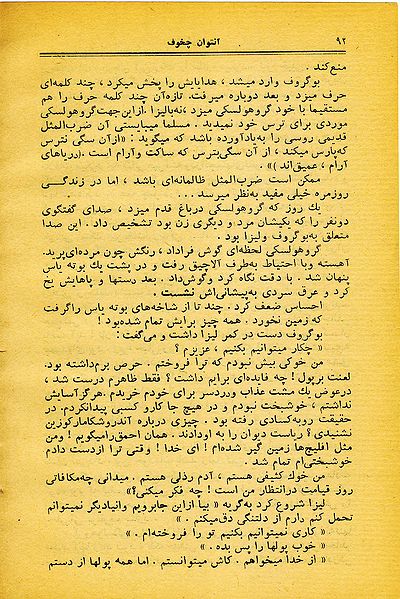 ۹۲ آنتوان چخوف
منع کند .
بوگروف وارد میشد ، هدایایش را پخش میکرد ، چند کلمه‌ای
حرف میزد و بعد دوباره میرفت. تازه‌آن چند کلمه حرف را هم
مستقیما با خود گروهولسکی میزد ،نه‌بالیزا .ازاین‌جهت‌گروهولسکی
موردی برای ترس خود نمیدید . مسلما میبایستی آن ضرب‌المثل
قدیمی روسی را به‌یادآورده باشد که میگوید : «ازآن سگی نترس
که‌پارس میکند ، از آن سگی‌بترس که ساکت وآرام است .(دریاهای
آرام ، عمیق‌اند )» .
ممکن است ضرب‌المثل ظالمانه‌ای باشد ، اما در زندگی
روزمره خیلی مفید به‌نظر میرسد ...
یك روز که گروهولسکی درباغ قدم میزد ، صدای گفتگوی
دونفر را که یکیشان مرد و دیگری زن بود تشخیص داد . این صدا
متعلق به‌بوگروف ولیزا بود .
گروهولسکی لحظه‌ای گوش فراداد، رنگش چون مرده‌ای‌پرید.
آهسته وبا احتیاط به‌طرف آلاچیق رفت و در پشت یك بوته یاس
پنهان شد . با دقت نگاه کرد وگوش‌داد . بعد دستها و پاهایش یخ
کرد و عرق سردی به‌پیشانی‌اش نشست .
احساس ضعف کرد . چند تا از شاخه‌های بوته یاس راگرفت
که زمین نخورد . همه چیز برایش تمام شده‌بود !
بوگروف دست در کمر لیزا داشت و می‌گفت :
« چکار میتوانیم بکنیم ، عزیزم ؟
من خوکی بیش نبودم که ترا فروختم . حرص برم‌داشته بود.
لعنت برپول ! چه فایده‌ای برایم داشت ؟ فقط ظاهرم درست شد ،
درعوض یك مشت عذاب ودردسر برای خودم خریدم .هرگزآسایش
نداشتم ، خوشبخت نبودم و در هیچ جا کارو کسبی پیدانکردم. در
حقیقت روبه‌کسادی رفته بود . چیزی درباره آندروشکامارکوزین
نشنیدی ؟ ریاست دیوان را به اودادند . همان احمق‌رامیگویم ! ومن
مثل افلیج‌ها زمین گیر شده‌ام ! ای خدا ! وقتی ترا ازدست دادم
خوشبختی‌ام تمام شد .
من خوك کثیفی هستم ، آدم رذلی هستم . میدانی چه‌مکافاتی
روز قیامت درانتظار من است ! چه فکر میکنی؟»
لیزا شروع کرد به‌گریه « بیا ازاین جابرویم وانیادیگر نمیتوانم
تحمل کنم دارم از دلتنگی دق‌میکنم . »
« کاری نمیتوانیم بکنیم تو را فروخته‌ام . »
« خوب پولها را پس بده . »
« از خدا میخواهم . کاش میتوانستم . اما همه پولها از دستم